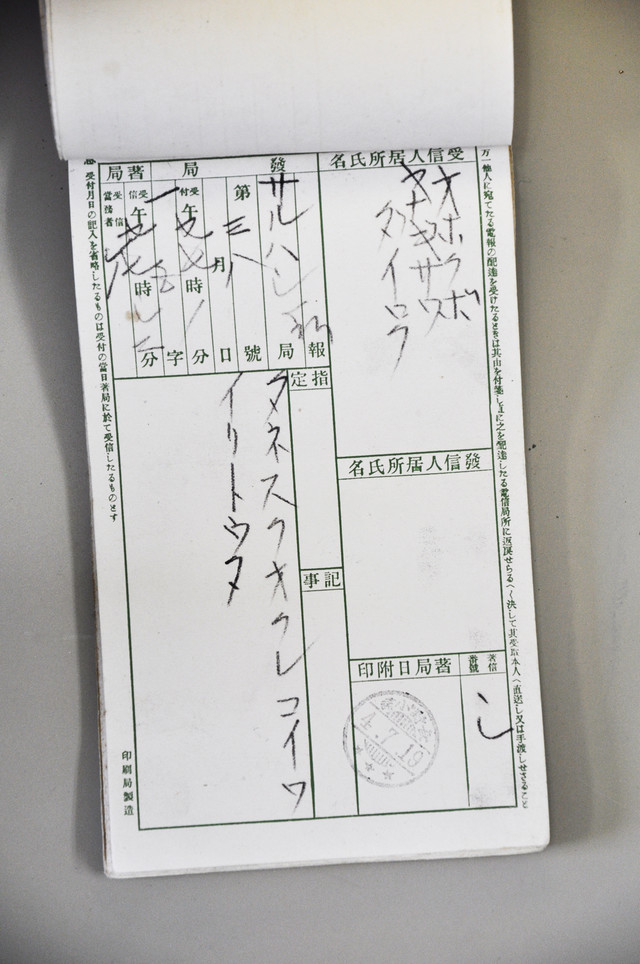 万一他人に宛てたる電報の配達を受けたるときは其由を付箋し直に之を配達したる電信局所に返戻せらるへく決して其受取本人へ直送し又は手渡しせさること
受信人居所氏名
オホクボ
ヤナギサワ
タイロウ
發信人居所氏名
著信番號
し
著局日附印
4.7.19
發局
報
局
サルハシ
第三八號
月
日
受付午
時
分
字
著局
受信午
時
分
受信當務者
指定
記事
タネスクオクレコイワ
イリトウヌ
受付月日の記入を省略したるものは受付の當日著局に於て受信したるものとす
印刷局製造